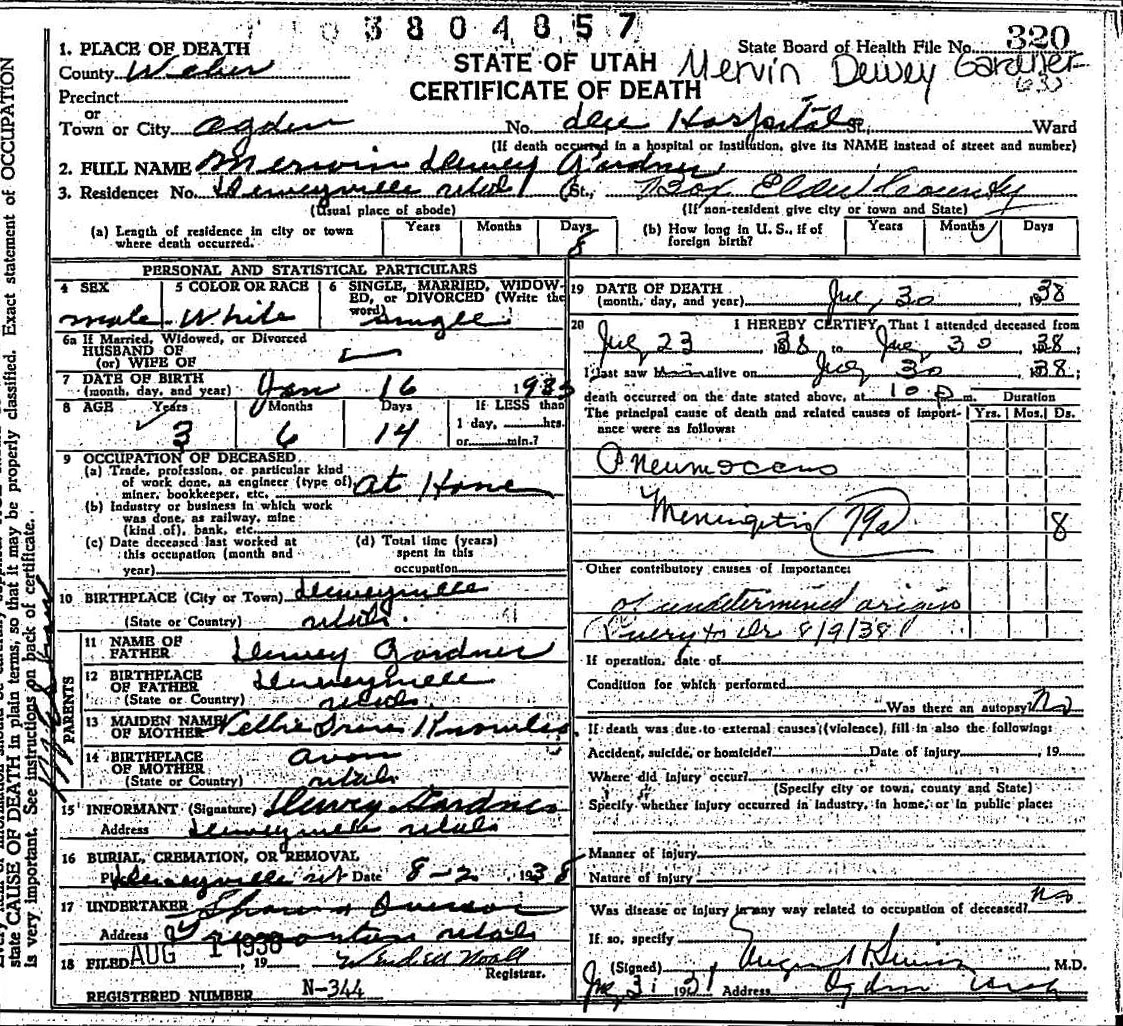 3804857
State Board of Health File No. 320
1. PLACE OF DEATH
STATE OF UTAH
Mervin Dewey Gardner
County Weber
CERTIFICATE OF DEATH
Precinct
or
Town or City Ogden No. dee Hospital St., Ward
(If death occurred in a hospital or institution, give its NAME instead of street and number)
2. FULL NAME Mervin Dewey Gardner
3. Residence: No. Deweyville Utah St., Box Elder County
(Usual place of abode) (If non-resident give city or town and State)
(a) Length of residence in city or town where death occurred. Years Months Days 8
(b) How long in U. S., if of foreign birth? Years Months Days
PERSONAL AND STATISTICAL PARTICULARS
4 SEX male
5 COLOR OR RACE White
6 SINGLE, MARRIED, WIDOWED, or DIVORCED (Write the word) Single
6a If Married, Widowed, or Divorced
HUSBAND OF
(or) WIFE OF
7 DATE OF BIRTH
(month, day, and year) Jan 16 1935
8 AGE Years Months Days If LESS than
3 6 14 1 day, hrs.
or min.?
9 OCCUPATION OF DECEASED
(a) Trade, profession, or particular kind
of work done, as engineer (type of)
miner, bookkeeper, etc. At Home
(b) Industry or business in which work
was done, as railway, mine
(kind of), bank, etc.
(c) Date deceased last worked at
this occupation (month and
year)
(d) Total time (years)
spent in this
occupation
10 BIRTHPLACE (City or Town) Deweyville
(State or Country) Utah
PARENTS
11 NAME OF
FATHER Dewey Gardner
12 BIRTHPLACE
OF FATHER Deweyville
(State or Country) Utah
13 MAIDEN NAME
OF MOTHER Nellie Irene Knowles
14 BIRTHPLACE
OF MOTHER Avon
(State or Country) Utah
15 INFORMANT (Signature) Dewey Gardner
Address Deweyville Utah
16 BURIAL, CREMATION, OR REMOVAL
Deweyville Ut Date 8-2, 1938
17 UNDERTAKER
Address Tremonton Utah
18 FILED AUG 1 1938, 19 Wendell Noall
Registrar.
REGISTERED NUMBER N-344
19 DATE OF DEATH
(month, day, and year) July 30 1938
20 I HEREBY CERTIFY, That I attended deceased from
July 23 1938 to July 30, 1938
I last saw him alive on July 30 1938;
death occurred on the date stated above, at 10 p m. Duration
The principal cause of death and related causes of importance were as follows: Yrs. Mos. Ds.
Pneumococcus
Meningitis (79a) 8
Other contributory causes of importance:
of undetermined origin
Query to Dr 8/9/38
If operation, date of
Condition for which performed
Was there an autopsy No
If death was due to external causes (violence), fill in also the following:
Accident, suicide, or homicide? Date of injury , 19
Where did injury occur?
(Specify city or town, county and State)
Specify whether injury occurred in industry, in home, or in public place:
Manner of injury
Nature of injury
Was disease or injury in any way related to occupation of deceased? No
If so, specify
(Signed) M.D.
Address Ogden Utah
state CAUSE OF DEATH in plain terms, so that it may be properly classified. Exact statement of OCCUPATION
is very important. See instructions on back of certificate.